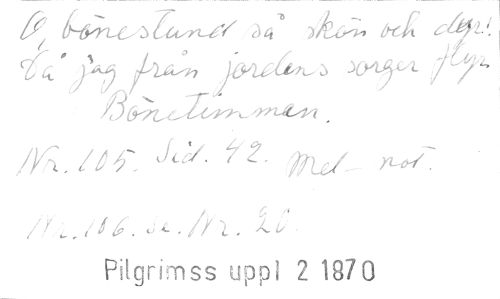 O, bönestund så skön och dyr!
Då jag från jordens sorger flyr
Bönetimman.
Nr. 105. Sid. 42. Mel - not.
Nr. 106. se. Nr. 20.
Pilgrimss uppl 2 1870